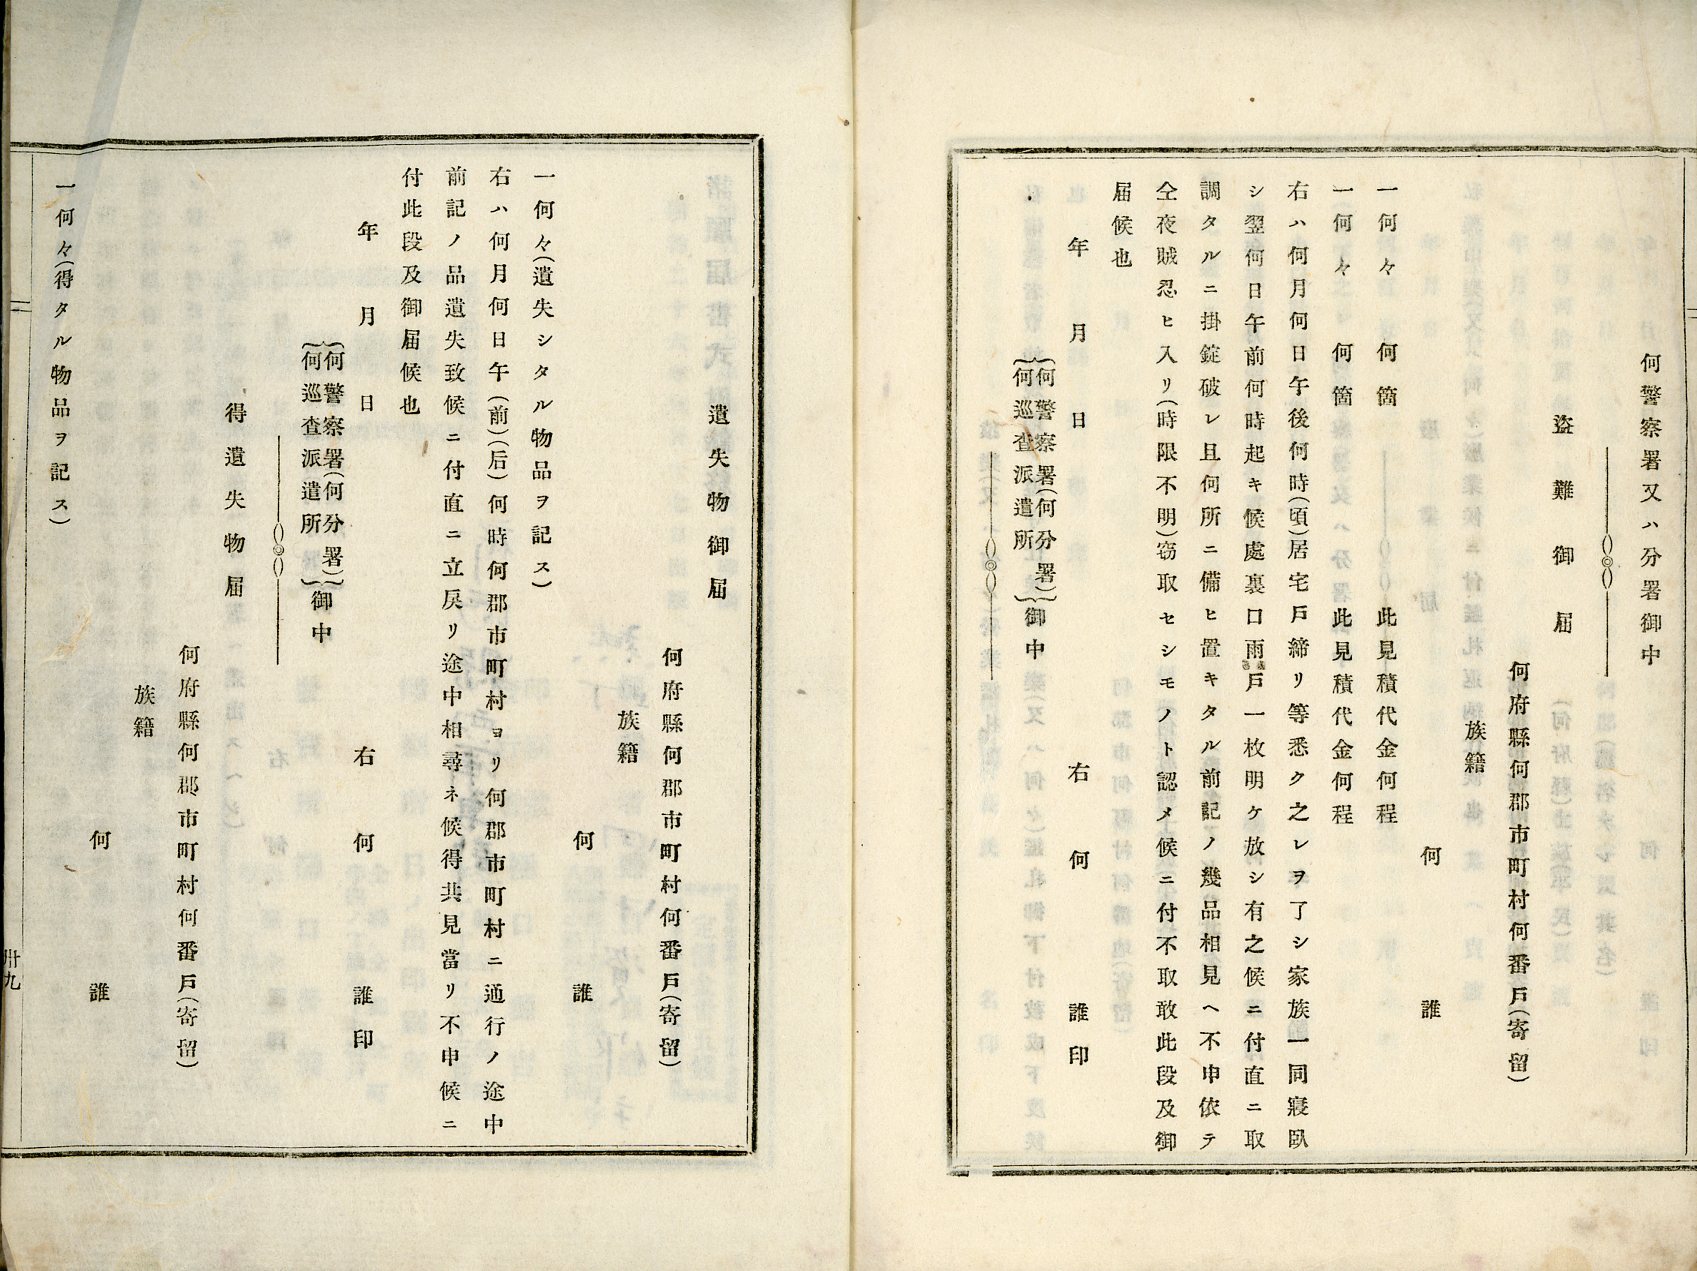 何警察署又ハ分署御中
盜難御屆
何府縣何郡市町村何番戶(寄留)
族籍
何誰
一何々 何箇 此見積代金何程
一何々 何箇 此見積代金何程
右ハ何月何日午後何時(頃)居宅戶締リ等悉ク之レヲ了シ家族一同寢臥
シ翌何日午前何時起キ候處裏口雨戶一枚明ケ放シ有之候ニ付直ニ取
調タルニ掛錠破レ且何所ニ備ヒ置キタル前記ノ幾品相見ヘ不申依テ
仝夜賊忍ヒ入リ(時限不明)窃取セシモノト認メ候ニ付不取敢此段及御
屆候也
年月日 右 何誰印
何警察署(何分署)
何巡査派遣所 御中
遺失物御屆
何府縣何郡市町村何番戶(寄留)
族籍
何誰
一何々(遺失シタル物品ヲ記ス)
右ハ何月何日午(前)(后)何時何郡市町村ヨリ何郡市町村ニ通行ノ途中
前記ノ品遺失致候ニ付直ニ立戾リ途中相尋ネ候得共見當リ不申候ニ
付此段及御屆候也
年月日 右何誰印
何警察署(何分署)
何巡査派遣所 御中
得遺失物屆
何府縣何郡市町村何番戶(寄留)
族籍
何誰
一何々(得タル物品ヲ記ス)
卅九